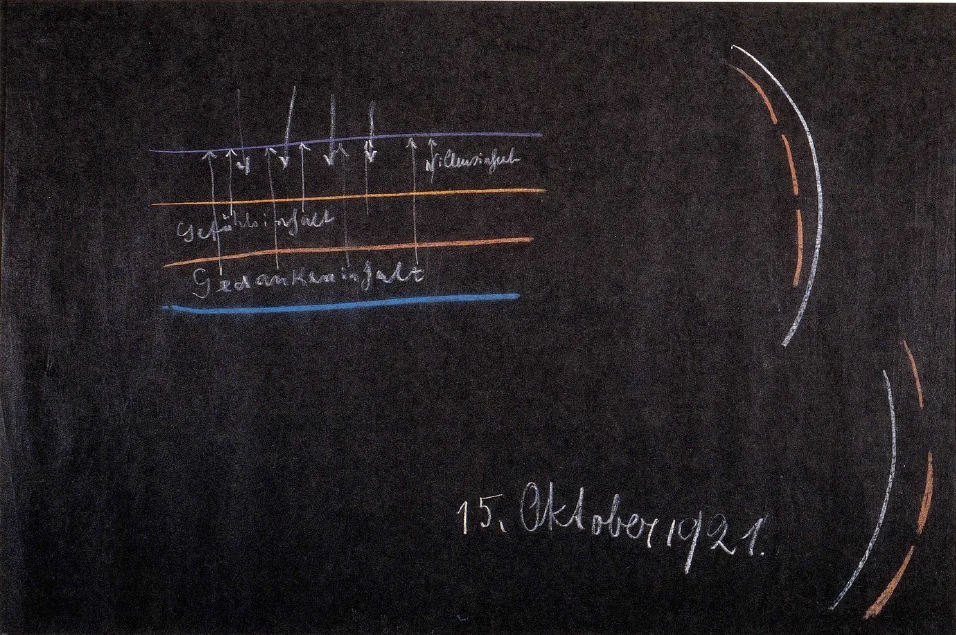 Willensinhalt
Gefühlsinhalt
Gedankeninhalt
15. Oktober 1921.